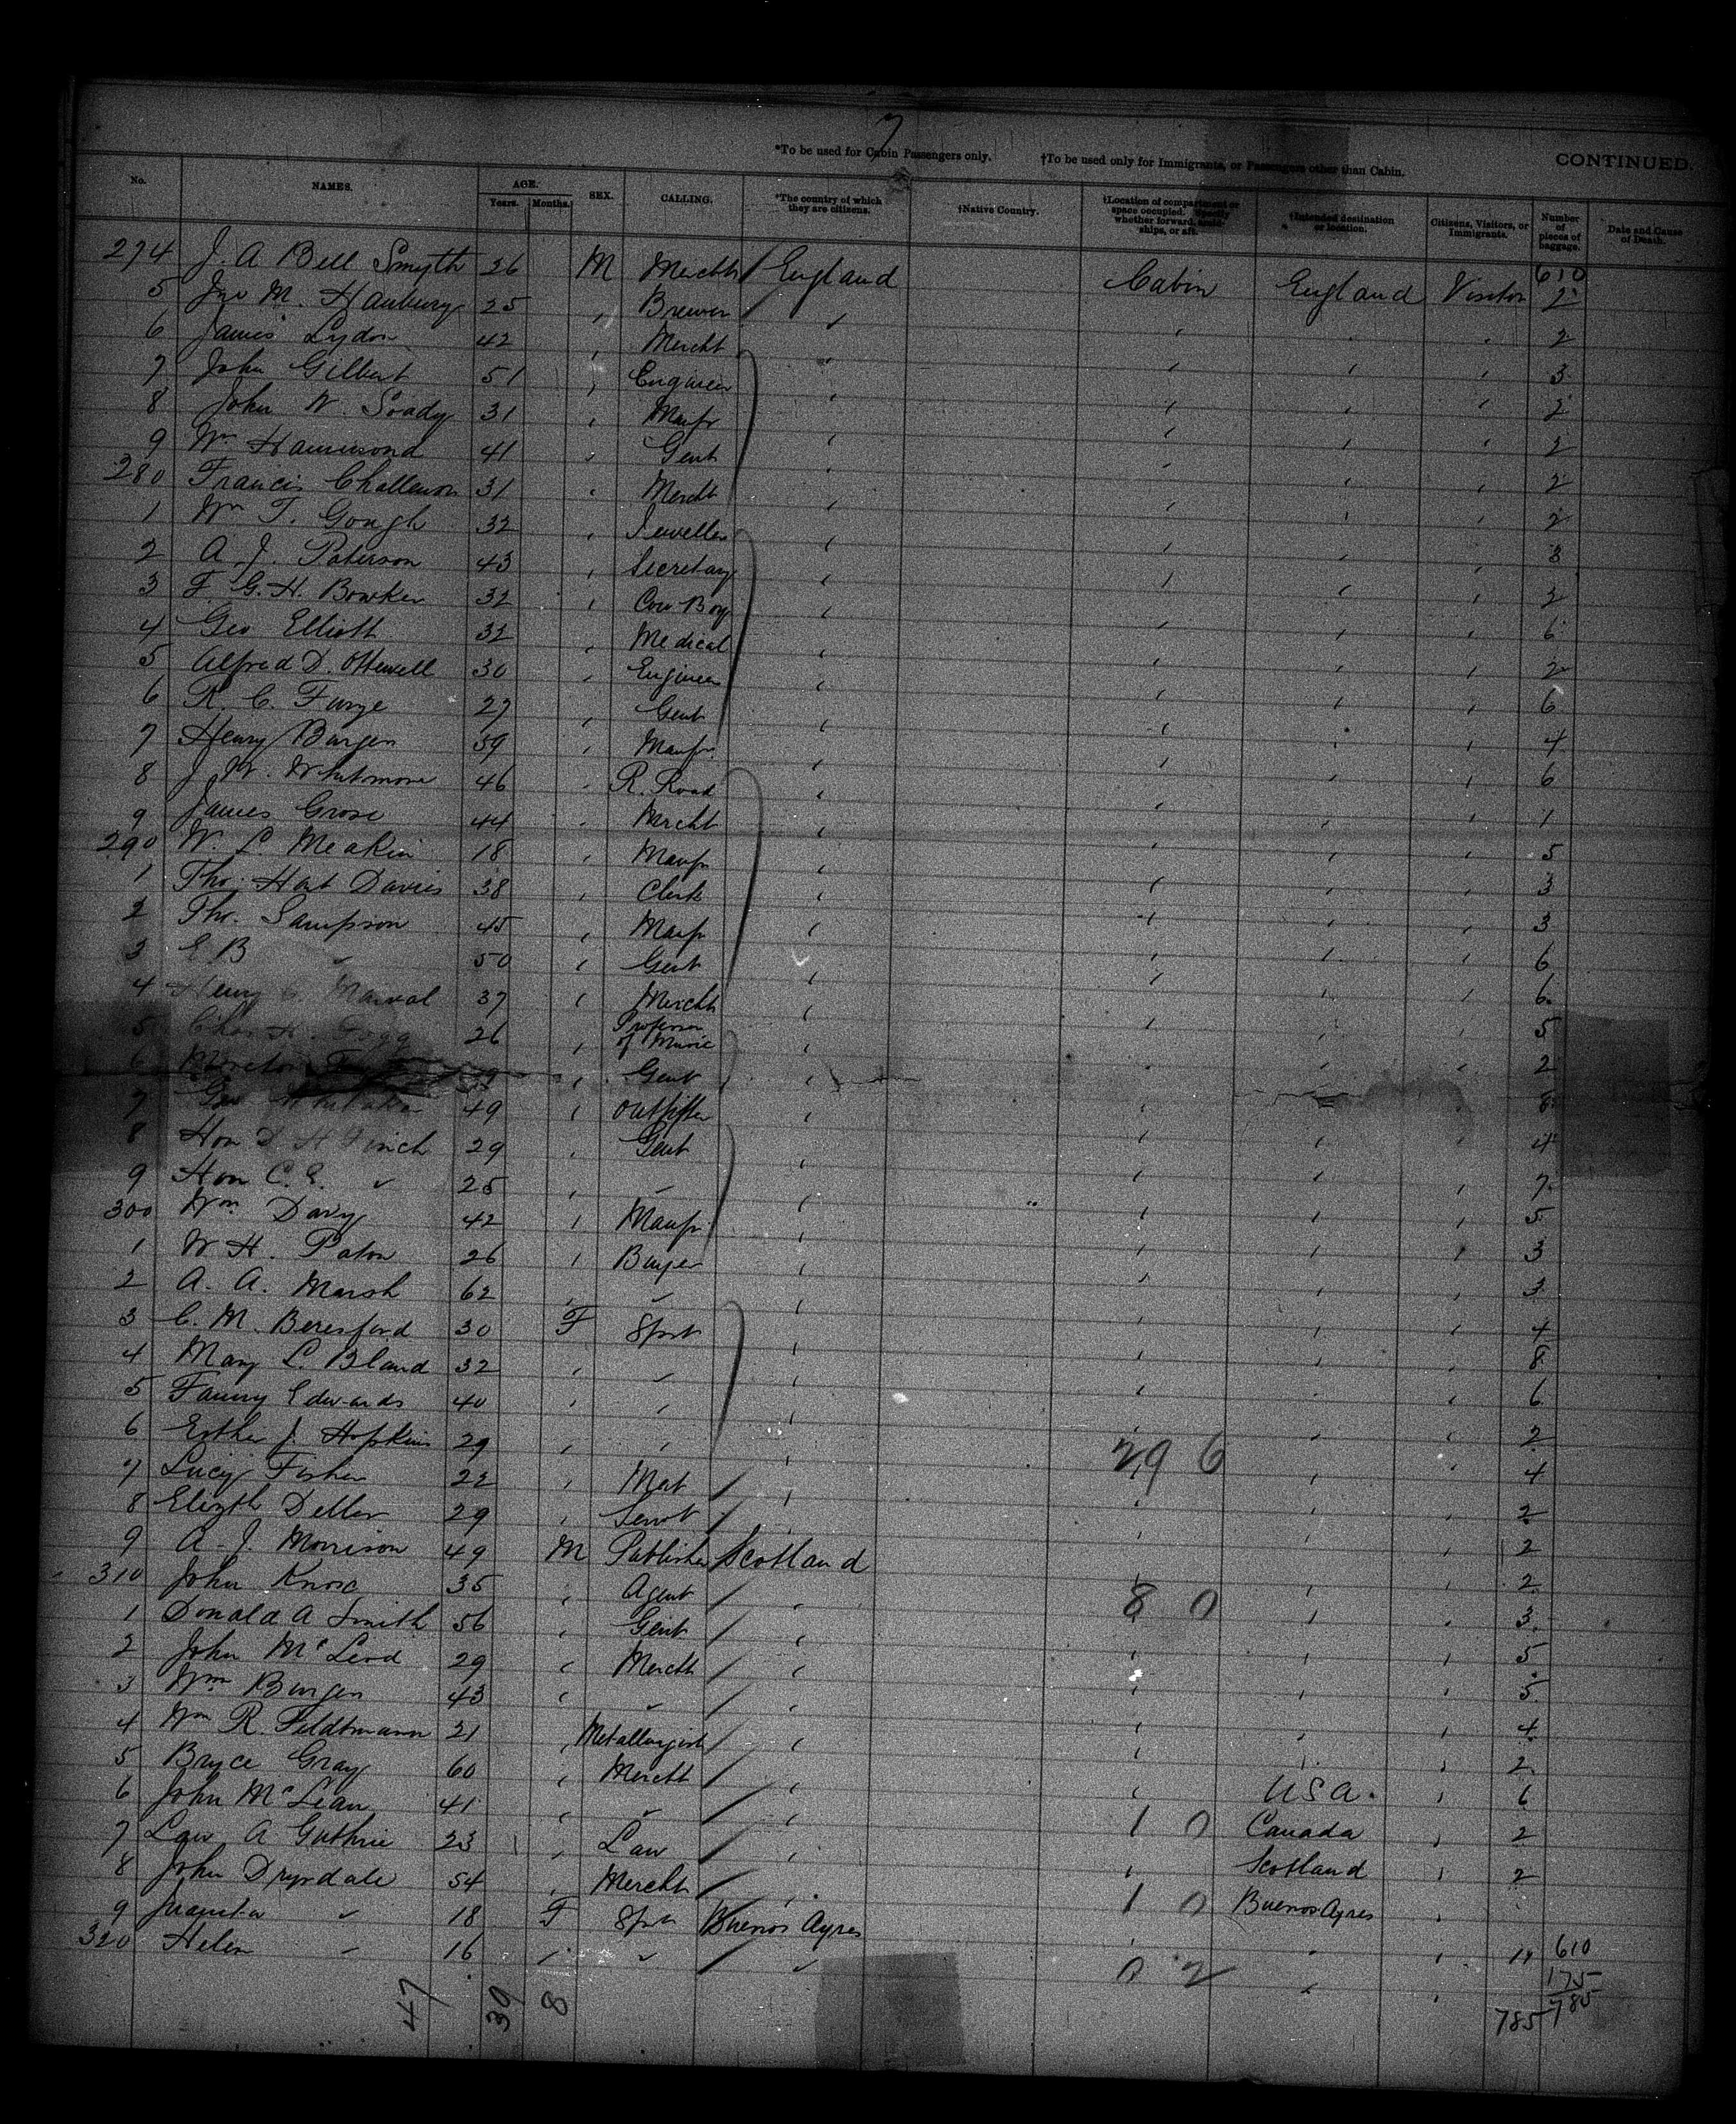 7
*To be used for Cabin Passengers only. †To be used only for Immigrants, or Passengers other than Cabin. CONTINUED.
No. NAMES. AGE. Years. Months. SEX. CALLING. *The country of which they are citizens. †Native Country. †Location of compartment or space occupied. Specify whether forward, amidships, or aft. †Intended destination or location. Citizens, Visitors, or Immigrants. Number of pieces of baggage. Date and Cause of Death.
610
274 J. A Bell Smyth 26 M Mercht England Cabin England Visitor 2
5 Jno M. Hanbury 25 Brewer 2
6 James Lydon 42 Mercht 3
7 John Gilbert 51 Engineer 2
8 John W. Soady 31 Manfr 2
9 Wm Hammond 41 Gent 2
280 Francis 31 Mercht 2
1 Wm T. Gough 32 Jeweller 3
2 A. J. Paterson 43 Secretary 2
3 F. G. H. Bowker 32 Cow Boy 6
4 Geo Elliott 32 Medical 2
5 Alfred D. Ottewell 30 Engineer 6
6 R. C. Furze 27 Gent 4
7 Henry Burgen 39 Manfr. 6
8 J. W. Whitmore 46 R. Road 1
9 James Grose 44 Mercht 5
290 W. L. Meakin 18 Manfr 3
1 Tho. Hart Davies 38 Clerk 3
2 Tho. Sampson 45 Manfr 6
3 E B " 50 Gent 6
4 Henry 37 Mercht 5
5 Chas H. 26 Professor of Music 2
6 Gent 8
7 Geo 49 Outfitter 4
8 Hon D H Finch 29 Gent 7
9 Hon C. E. " 25 " 5
300 Wm Davy 42 Manfr 3
1 W H. Paton 26 Buyer 3
2 A. A. Marsh 62 " 4
3 C. M. Beresford 30 F Spst 8
4 Mary L. Bland 32 " 6
5 Fanny Edwards 40 " 2
6 Esther J. Hopkins 29 " 29 6 4
7 Lucy Fisher 22 Mat 2
8 Elizth Deller 29 Servt 2
9 A. J. Morrison 49 M Publisher Scotland 2
310 John Knox 35 Agent 8 0 3
1 Donald A Smith 56 Gent 5
2 John McLeod 29 Mercht 5
3 Wm Burgen 43 " 4
4 Wm R. Feldtmann 21 Metallurgist 2
5 Bryce Gray 60 Mercht USA. 6
6 John McLean 41 " 1 0 Canada 2
7 Law A Guthrie 23 Law Scotland 2
8 John Drysdale 54 Mercht 1 0 Buenos Ayres
9 Juanita " 18 F Spst Buenos Ayres 14
320 Helen " 16 " " 0 2
610
175
785
785
47 39 8